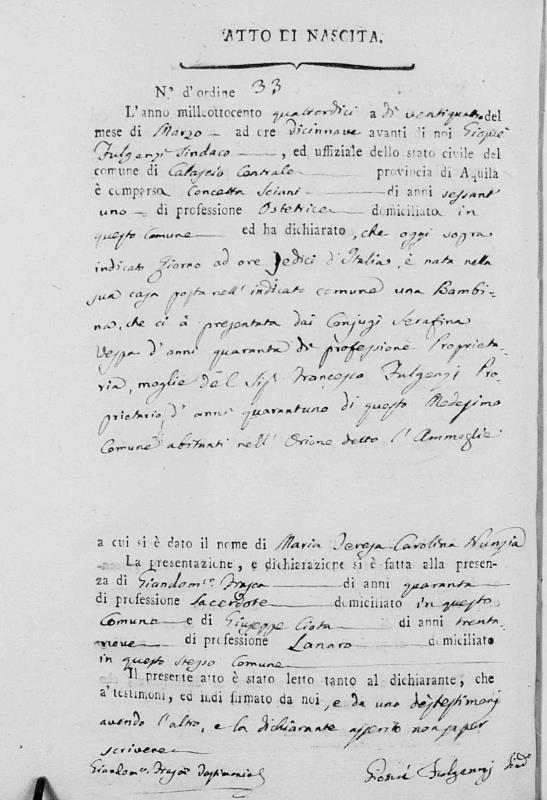 ATTO DI NASCITA.
N.º d'ordine 33
L'anno millottocento quattordici a dì ventiquattro del
mese di Marzo ad ore dicinnove avanti di noi Giosuè
Fulgenzi Sindaco, ed uffiziale dello stato civile del
comune di Calascio Centrale provincia di Aquila
è comparsa Concetta Sciani di anni sessant'
uno di professione Ostetrice domiciliata in
questo Comune ed ha dichiarato, che oggi sopra
indicato Giorno ad ore sedici d'Italia, è nata nella
sua casa posta nell'indicato comune una Bambi-
na, che ci à presentata dai Conjugi Serafina
Vespa d'anni quaranta di professione Proprieta-
ria, moglie del Sig.r Francesco Fulgenzj Pro-
prietario, d'anni quarantuno di questo Medesimo
Comune abituati nell' Orione detto l'Ammoglie
a cui si è dato il nome di Maria Teresa Carolina Nunzia
La presentazione, e dichiarazione si è fatta alla presen-
za di Giandom.co Frasca di anni quaranta
di professione Sacerdote domiciliato in questo
Comune e di Giuseppe Ciota di anni trenta
nove di professione Lanaro domiciliato
in questo stesso Comune
Il presente atto è stato letto tanto al dichiarante, che
a' testimonj, ed indi firmato da noi, e da uno de' testimonj
avendo l'altro, e la dichiarante asserito non saper
scrivere
Giandom.co testimonio Giosuè Fulgenzj Sind.o